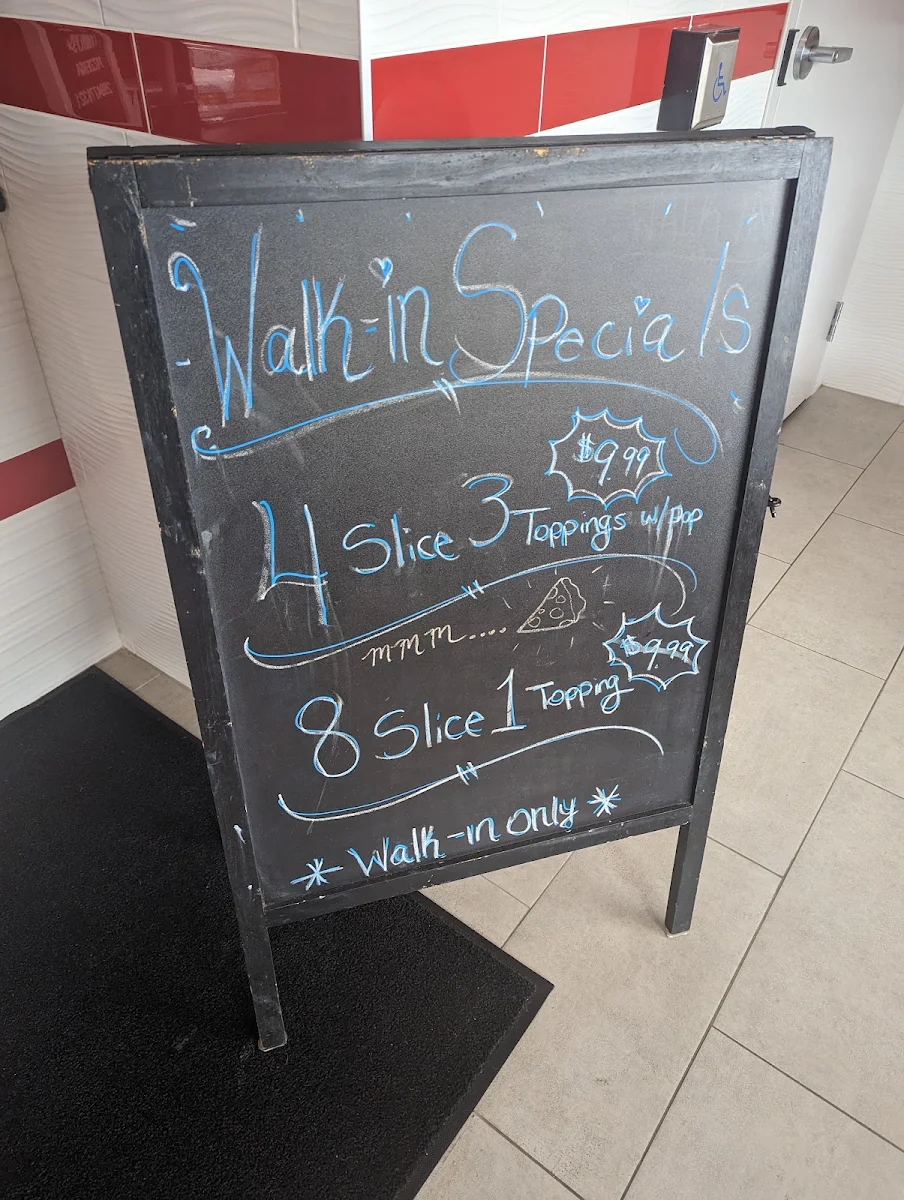 Walk-in Specials
$9.99
4 Slice 3 Toppings w/pop
mmm....
$9.99
8 Slice 1 Topping
* Walk-in only *